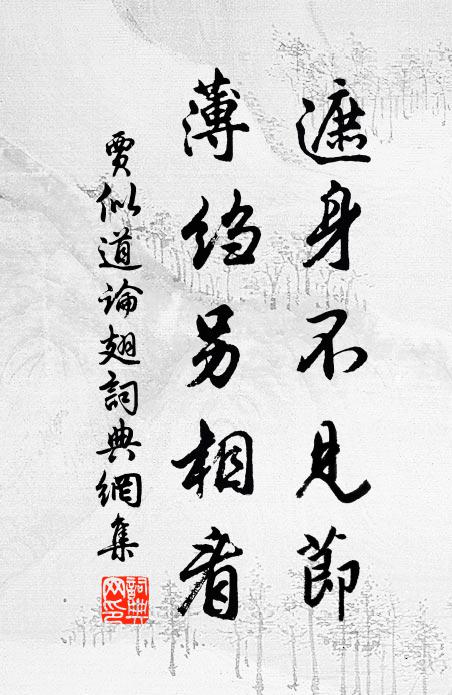 遮身不見節
薄绉另相看
賈似道論翅詞典網集
詞典
网印